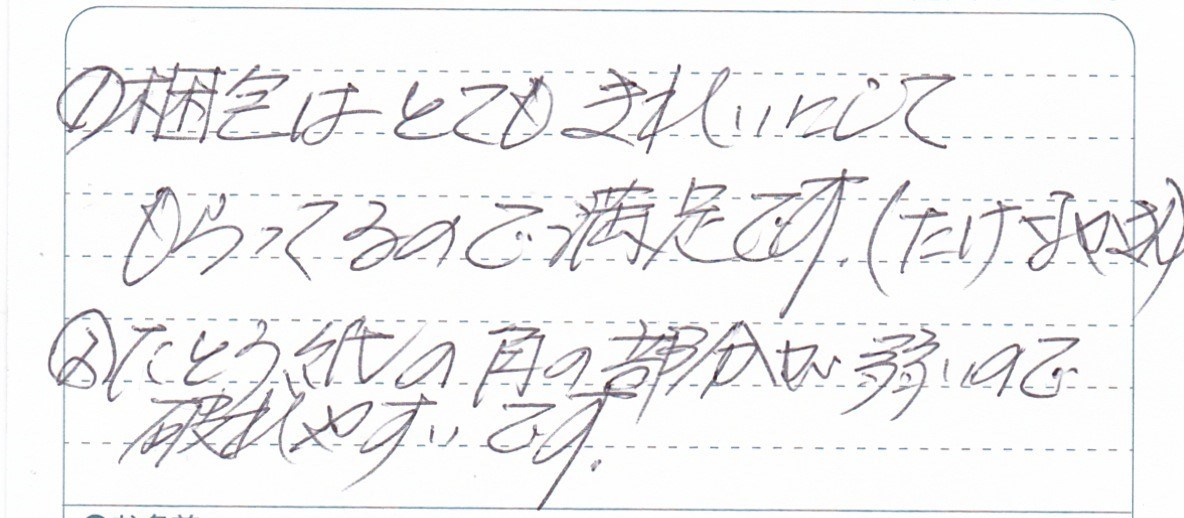 ①梱包はとてもきれいにして
もらってるので満足です。(たけなやま)
②たとう紙の角の部分が弱いので
破れやすいです。